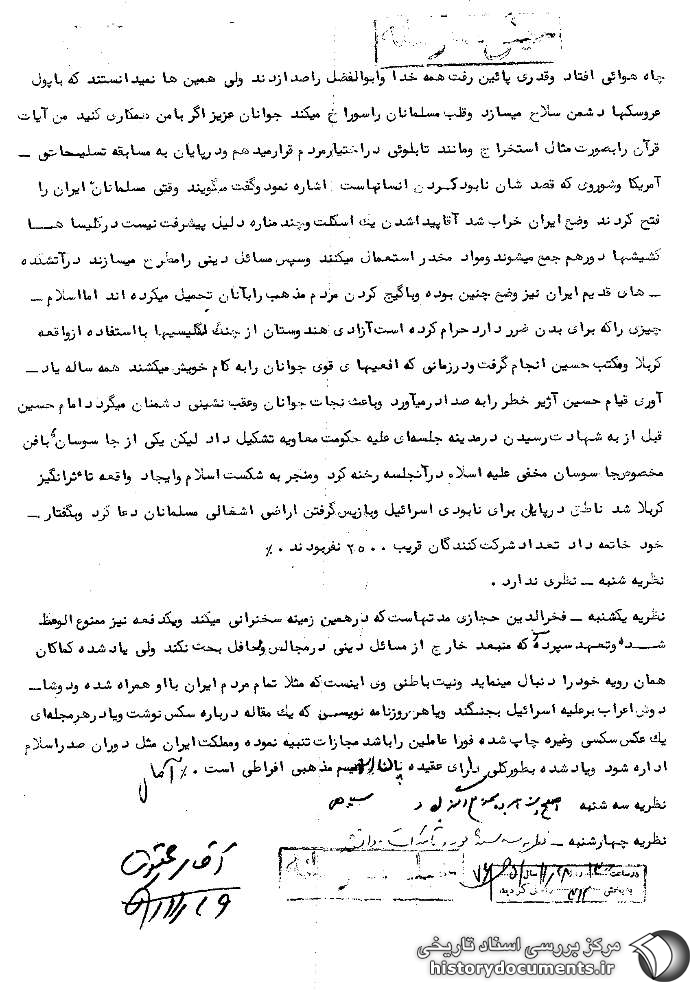 چاه هوائی افتاد وقدری پائین رفت همه خدا وابوالفضل راصدازدند ولی همین ها نمیدانستند که باپول
عروسکها دشمن سلاح میسازد وقلب مسلمانان راسوراخ میکند جوانان عزیز اگر بامن همکاری کنید من آیات
قرآن رابصورت مثال استخراج ومانند تابلوئی دراختیارمردم قرارمیدهم ودرپایان به مسابقه تسلیحاتی ـ
آمریکا وشوروی که قصد شان نابودکردن انسانهاست اشاره نمود وگفت میگویند وقتی مسلمانان ایران را
فتح کردند وضع ایران خراب شد آقاپیداشدن یك اسکلت وچند مناره دلیل پیشرفت نیست درکلیسا هـا
کشیشها دورهم جمع میشوند ومواد مخدر استعمال میکنند وسپس مسائل دینی رامطرح میسازند درآتشکده
ـ های قدیم ایران نیز وضع چنین بوده وباگیج کردن مردم مذهب رابآنان تحمیل میکرده اند امااسلام ـ
چیزی راکه برای بدن ضرر دارد حرام کرده است آزادی هندوستان از چنگ انگلیسیها بااستفاده ازواقعه
کربلا ومکتب حسین انجام گرفت ودرزمانی که افعیهای قوی جوانان رابه کام خویش میکشند همه ساله یاد ـ
آوری قیام حسین آژیر خطر رابه صدا درمیآورد وباعث نجات جوانان وعقب نشینی دشمنان میگردد امام حسین
قبل از به شهادت رسیدن درمدینه جلسه‌ای علیه حکومت معاویه تشکیل داد لیکن یکی از جاسوسان بافن
مخصوص جاسوسان مخفی علیه اسلام درآنجلسه رخنه کرد ومنجر به شکست اسلام وایجاد واقعه تاءثرانگیز
کربلا شد ناطق درپایان برای نابودی اسرائیل وبازپس گرفتن اراضی اشغالی مسلمانان دعا کرد وبگفتار ـ
خود خاتمه داد تعداد شرکت کنندگان قریب ۲۵۰۰ نفربودند ٪
نظریه شنبه ـ نظری ندارد .
نظریه یکشنبه ـ فخرالدین حجازی مدتهاست که درهمین زمینه سخنرانی میکند ویکدفعه نیز ممنوع الوعظ
شـده وتعهد سپرده که منبعد خارج از مسائل دینی درمجالس ومحافل بحث نکند ولی یادشده کماکان
همان رویه خودرا دنبال مینماید ونیت باطنی وی اینست که مثلا تمام مردم ایران بااو همراه شده ودوشاـ
دوش اعراب برعلیه اسرائیل بجنگند ویاهر روزنامه نویسی که یك مقاله درباره سکس نوشت ویادرهرمجله‌ای
یك عکس سکسی وغیره چاپ شده فورا عاملین راباشد مجازات تنبیه نموده ومملکت ایران مثل دوران صدراسلام
اداره شود ویادشده بطورکلی دارای عقیده پان اسلامیسم مذهبی افراطی است ٪
نظریه سه شنبه
نظریه چهارشنبه ـ
مرکز بررسی اسناد تاریخی
historydocuments.ir